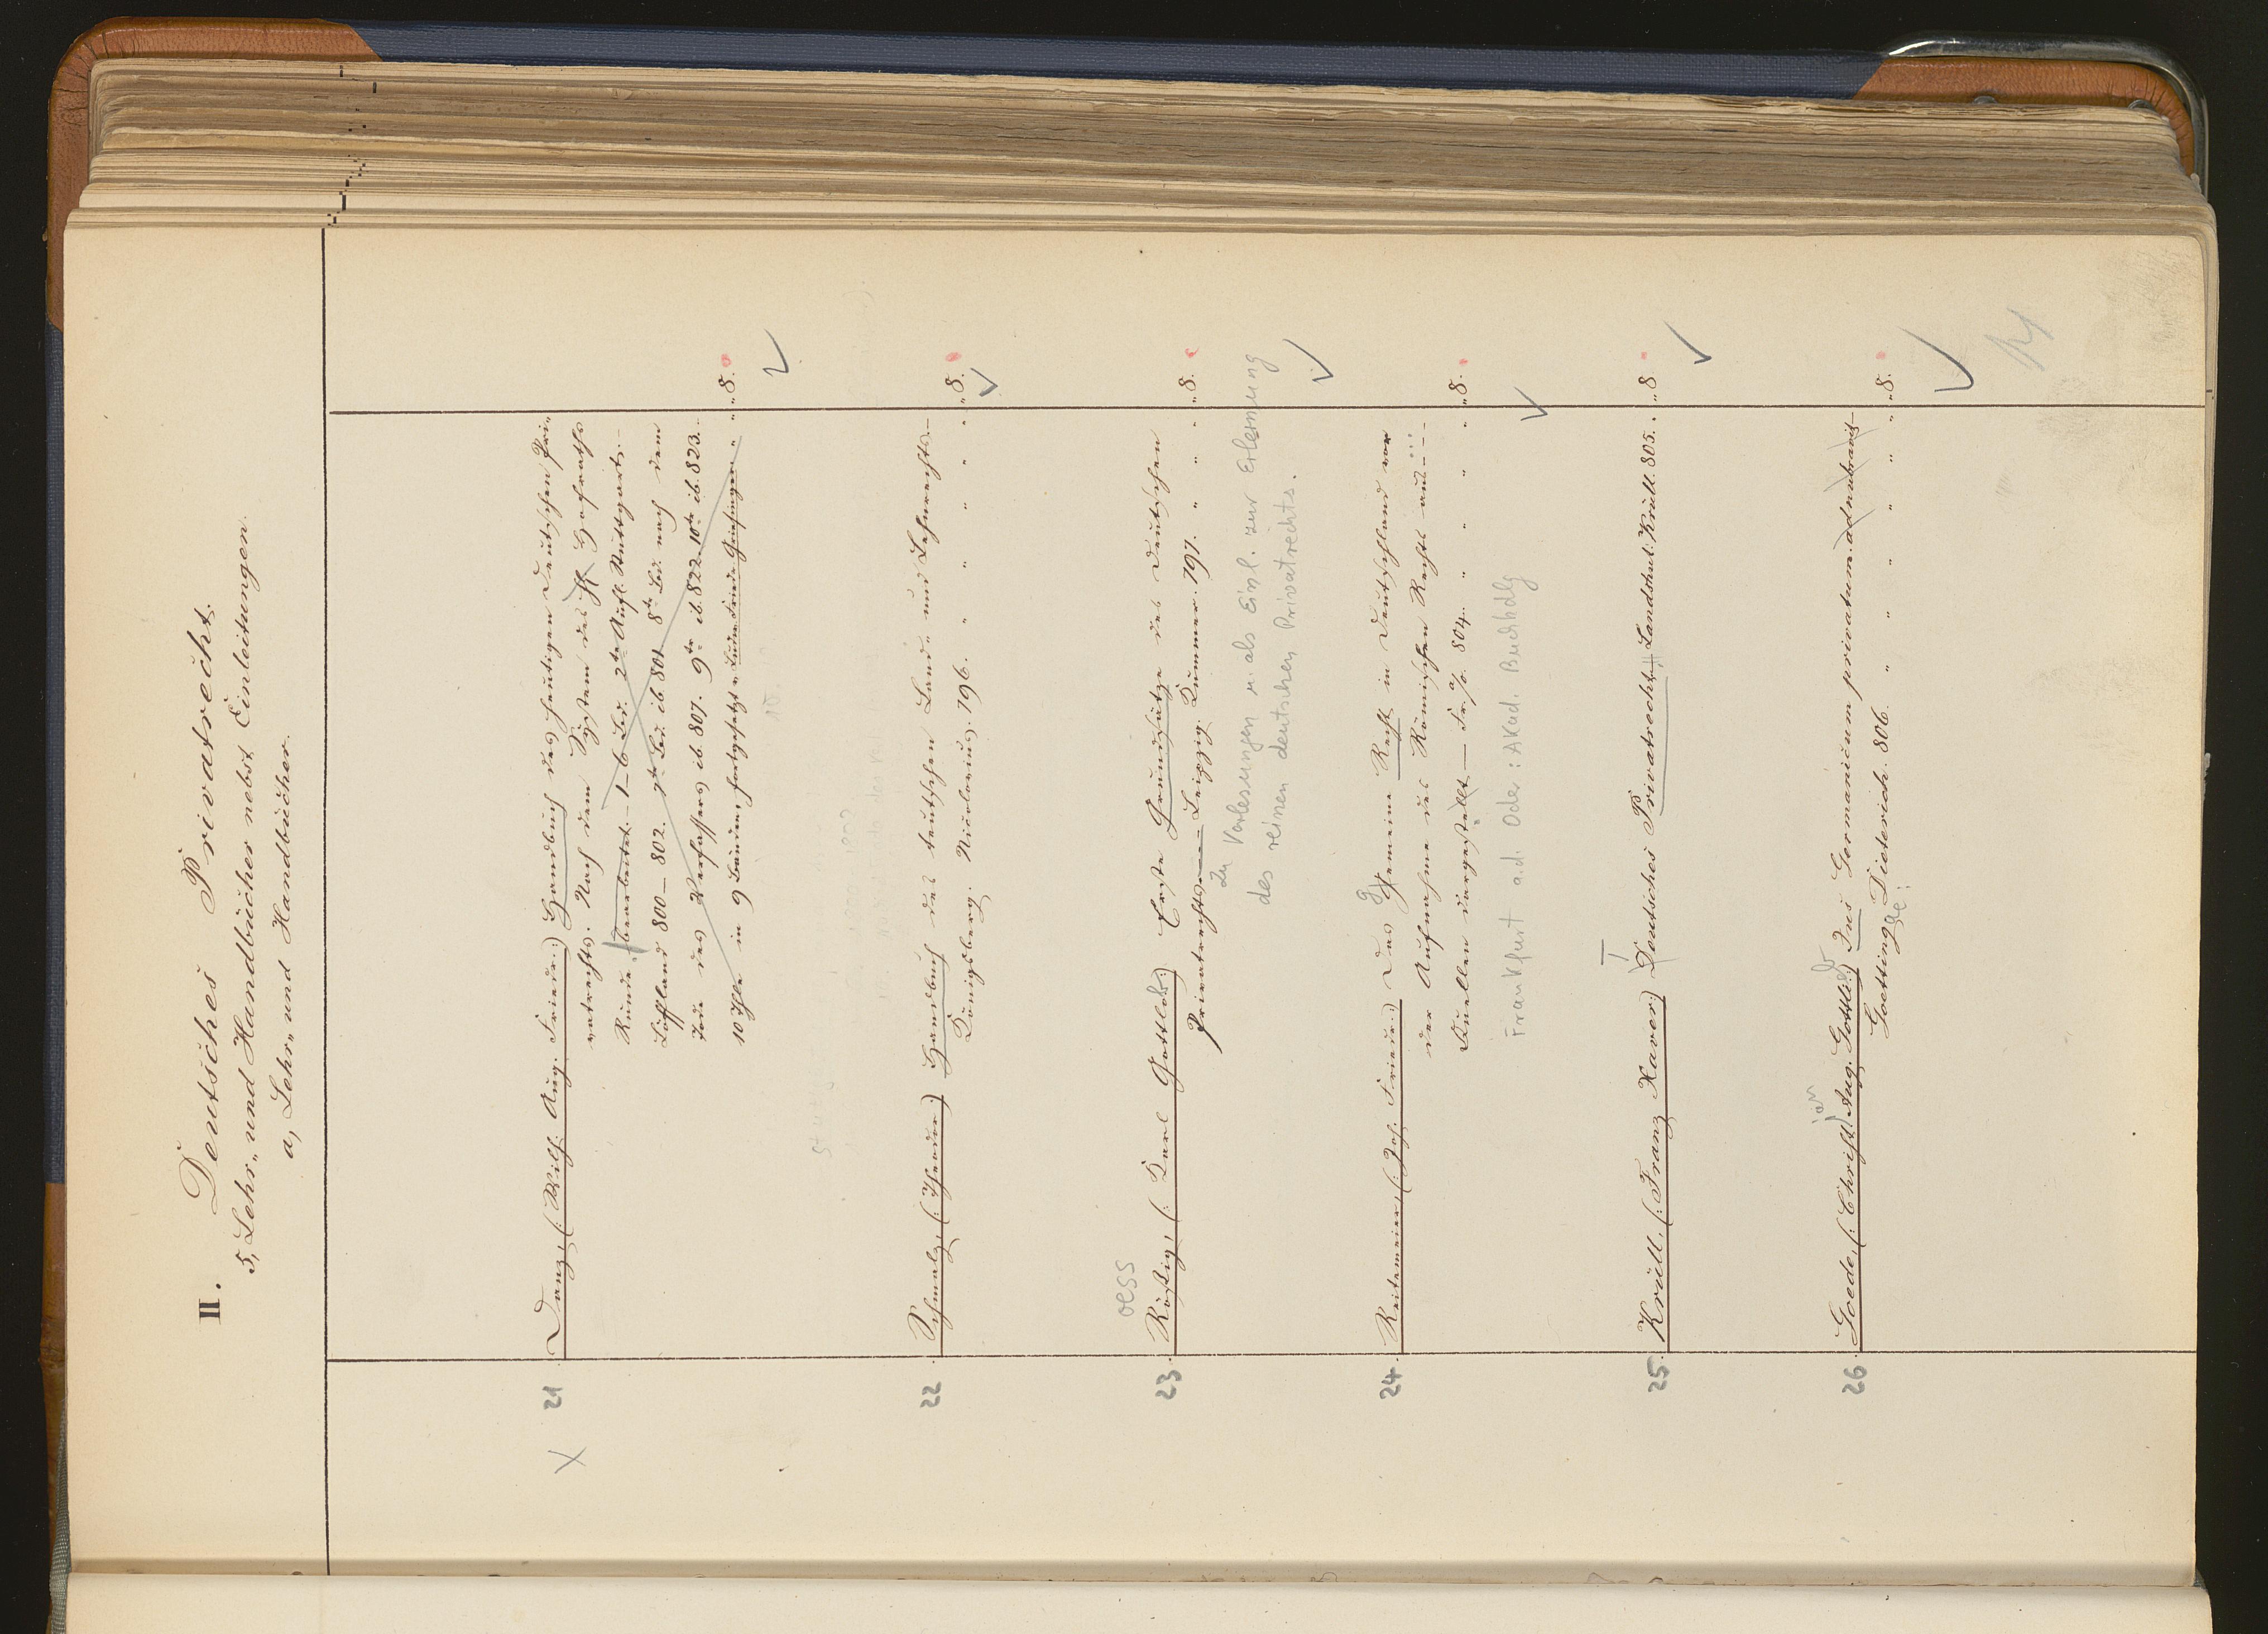 II. Deutsches Privatrecht.
5, Lehr- und Handbücher nebst Einleitungen.
a, Lehr- und Handbücher.
X 21 Danz, (: Wilh. Aug. Friedr:) Handbuch des heutigen deutschen Pri-
vatrechts. Nach dem System des H. Hofraths
Runde bearbeitet. 1-6 Bd. 2te Aufl. Stuttgart.
Löffland 800-802. 7te Bd. ib 801 8te Bd. nach dem
Tode des Verfassers ib. 807. 9te ib. 822. 10te ib. 823.
10 Thle in 9 Bänden, fortgesetzt v. Ludw. Friedr. Griesinger " „8.
22 Schmalz, (: Theodor) Handbuch des teutschen Land- und Lehnrechts.
Königsberg. Nicolovius. 796. " " " " „8.
oess
23 Rössig, (: Karl Gottlob:) Erste Grundsätze des deutschen
Privatrechts Leipzig. Kummer. 797. " " „8.
Zu Vorlesungen u. als Einl. zur Erlernung
des reinen deutschen Privatrechts.
24 Reitemeier, (: Joh. Friedr:) Das gemeine Recht in Deutschland vor
der Aufnahme des Römischen Rechts aus
Quellen dargestellt - Frf a/o. 804. " " " „8.
Frankfurt a.d. Oder: Akad. Buchhdlg
25 Krüll, (: Franz Xaver:) Deutsches Privatrecht, Landshut. Krüll. 805. „8
26 Goede, (: Christian Aug. Gottlieb:) Jus Germanicum privatum adumbravit
Goettingae: Dieterich. 806. " " " " " " „8.